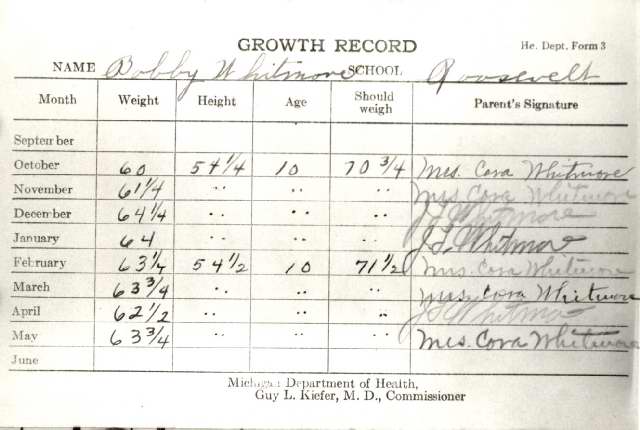 GROWTH RECORD
He. Dept. Form 3
NAME Bobby Whitmore SCHOOL Roosevelt
Month Weight Height Age Should weigh Parent's Signature
September
October 60 54 1/4 10 70 3/4 Mrs. Cora Whitmore
November 61 1/4 " " " Mrs Cora Whitmore
December 64 1/4 " " " J. L. Whitmore
January 64 " " " J. L. Whitmore
February 63 1/4 54 1/2 10 71 1/2 Mrs Cora Whitmore
March 63 3/4 " " " Mrs. Cora Whitmore
April 62 1/2 " " " J L Whitmore
May 63 3/4 " " " Mrs. Cora Whitmore
June
Michigan Department of Health,
Guy L. Kiefer, M. D., Commissioner